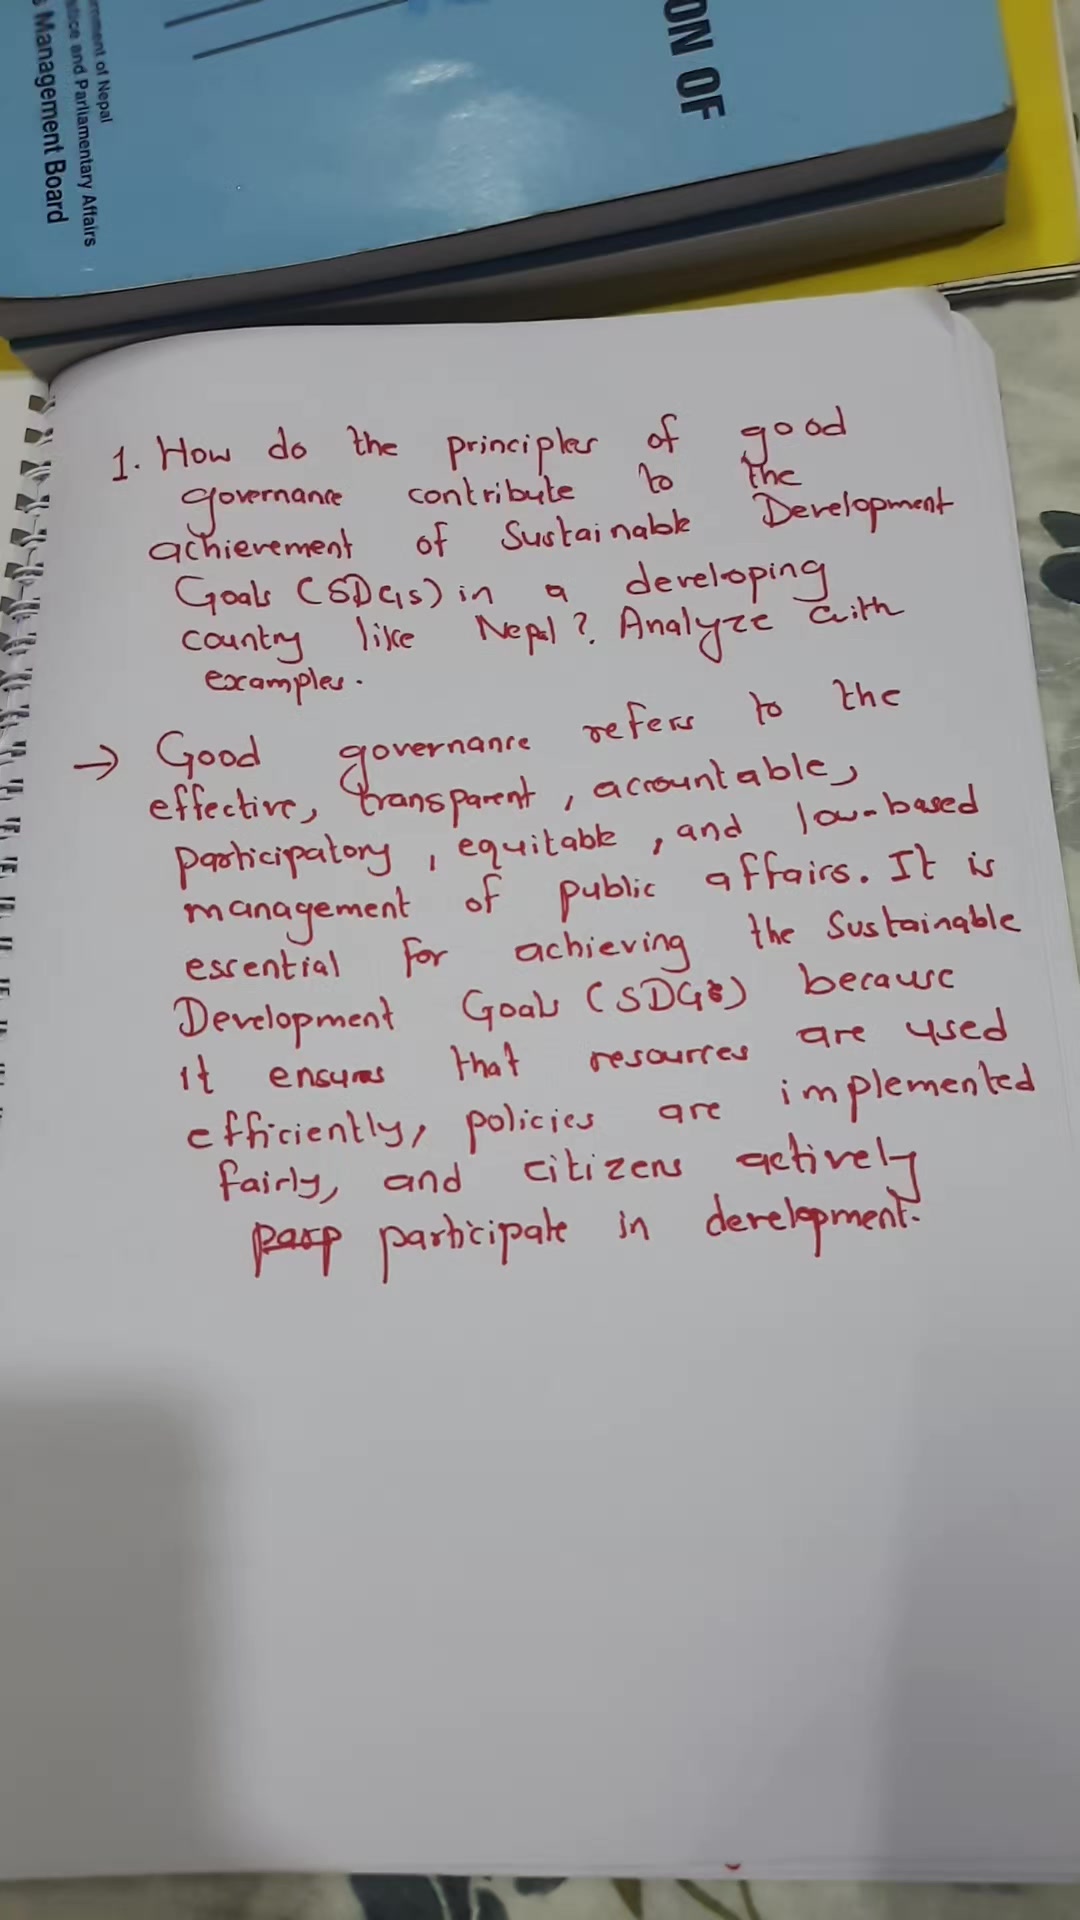 ON OF
rnment of Nepal
stice and Parliamentary Affairs
s Management Board
1. How do the principles of good
governance contribute to the
achievement of Sustainable Development
Goals (SDGs) in a developing
country like Nepal?. Analyze with
examples.
→ Good governance refers to the
effective, transparent, accountable,
participatory, equitable, and low-based
management of public affairs. It is
essential for achieving the Sustainable
Development Goals (SDGs) because
it ensures that resources are used
efficiently, policies are implemented
fairly, and citizens actively
parp participate in development.